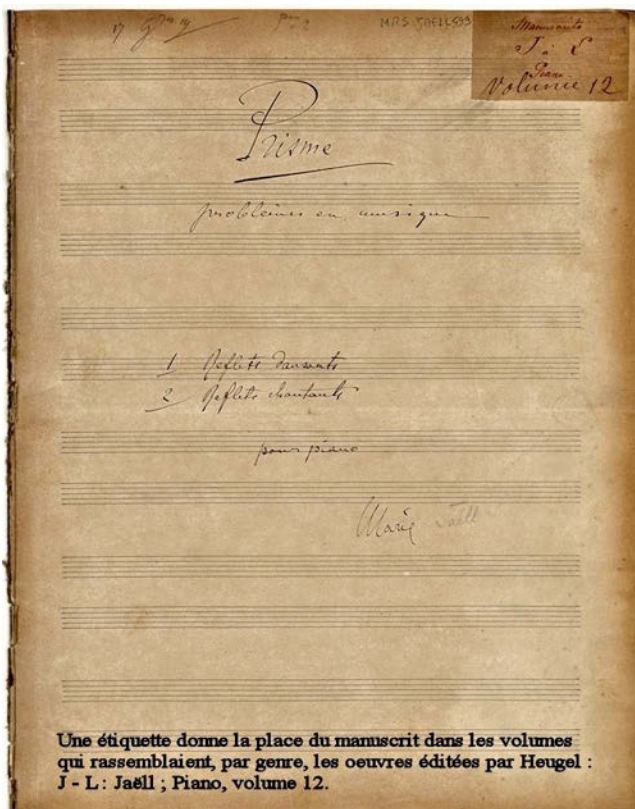 MRS JAËLL 599
Manuscrits
J à L
Piano
Volume 12
Prisme
problèmes en musique
1 Reflets dansants
2 Reflets chantants
pour piano
Marie Jaëll
Une étiquette donne la place du manuscrit dans les volumes
qui rassemblaient, par genre, les oeuvres éditées par Heugel :
J - L : Jaëll ; Piano, volume 12.